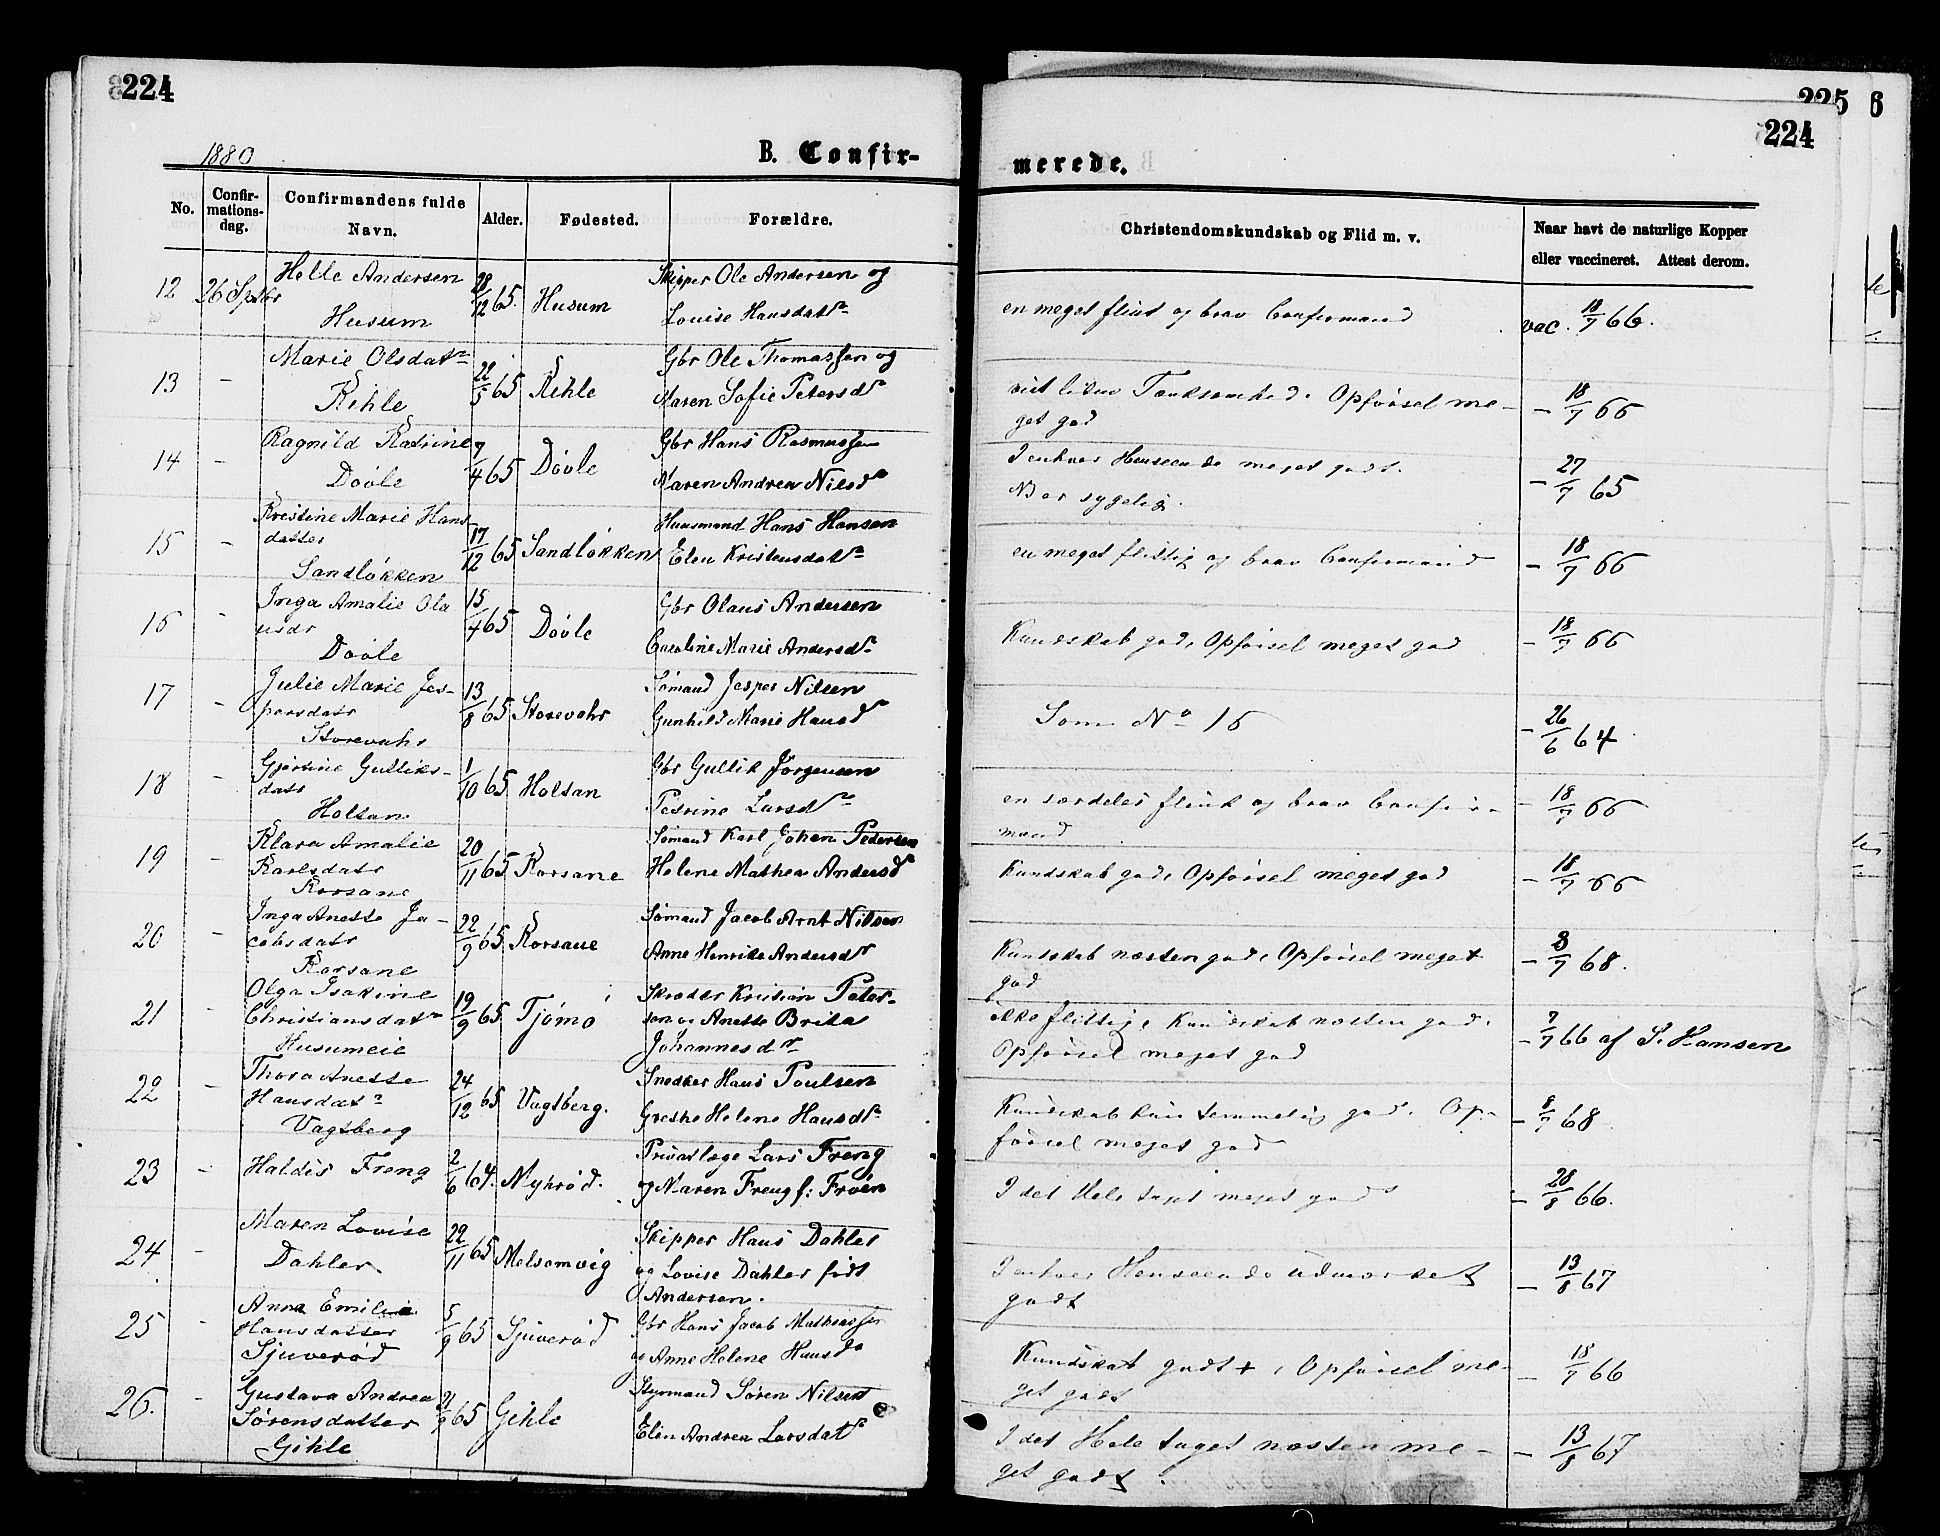 224
225 6
224
1880
B. Confir-
merede.
No.
Confir-
mations-
dag.
Confirmandens fulde
Navn.
Alder.
Fødested.
Forældre.
Christendomskundskab og Flid m. v.
Naar havt de naturlige Kopper
eller vaccineret. Attest derom.
12 26 Sptbr Helle Andersen 28/12 65. Husum Skipper Ole Andersen og
Husum Louise Hansdatr
en meget flink og brav Confirmand vac. 18/7 66.
13 - Marie Olsdatr 22/5 65 Kihle Gbr Ole Thomassen og
Kihle Maren Sofie Petersdr
Opførsel me-
get god
- 18/7 66
14 - Ragnild Katrine 7/4 65 Døvle Gbr Hans Rasmussen
Døvle Maren Andrea Nilsdr
I enhver Henseende meget godt.
NB er sygelig.
- 27/7 65
15 - Kristine Marie Hans
datter 17/12 65 Sandløkken Huusmand Hans Hansen
Sandløkken Elen Kristensdatr
en meget flittig og brav Confirmand - 18/7 66
16 - Inga Amalie Ola
usdr 15/4 65 Døvle Gbr Olaus Andersen
Døvle Caroline Marie Andersdr
Kundskab god, Opførsel meget god - 18/7 66
17 - Julie Marie Jes-
persdatr 13/8 65 Storevahr Sømand Jesper Nilsen
Storevahr Gunhild Marie Hansdr
Som No 16 - 26/6 64
18 - Gjertine Gulliks-
datr 1/10 65 Holtan Gbr Gullik Jørgensen
Holtan. Petrine Larsdr
en særdeles flink og brav Confir-
mand
- 18/7 66
19 - Klara Amalie
Karlsdatr 20/11 65 Korsane Sømand Karl Johan Pedersen
Korsane Helene Mathea Andersdr
Kundskab god, Opførsel meget god - 18/7 66
20 - Inga Anette Ja-
cobsdatr 22/9 65 Korsane Sømand Jacob Arnt Nilsen
Korsane Anne Henrike Andersdr
Kundskab næsten god, Opførsel meget
god
- 8/7 68.
21 - Olga Isakine
Christiansdatr 19/9 65 Tjømø Skræder Kristian Peter-
Husumeie sen og Anette Brita
Johannesdr
ikke flittig, Kundskab næsten god.
Opførsel meget god
- 7/7 66 af S. Hansen
22 - Thora Anette
Hansdatr 24/12 65 Vagtberg. Snedker Hans Poulsen
Vagtberg Grethe Helene Hansdr
Kundskab kun temmelig god. Op-
førsel meget god
- 8/7 68
23 - Haldis Freng 2/6 64. Nykrød. Privatlæge Lars Freng
og Maren Freng f: Frøen
I det Hele taget meget godt - 28/8 66.
24 - Maren Lovise 22/11 65 Melsomvig Skipper Hans Dahler
Dahler og Lovise Dahler født
Andersen.
I enhver Henseende udmærket
godt
- 13/8 67
25 - Anna Emilie
Hansdatter 5/9 65 Sjuverød Gbr Hans Jacob Mathiassen
Sjuverød og Anne Helene Hansdr
Kundskab godt +, Opførsel me-
get godt
- 18/7 66
26. - Gustava Andrea
Sørensdatter 21/9 65 Gihle Styrmand Søren Nilsen
Gihle Elen Andrea Larsdatr
I det Hele taget næsten me-
get godt.
- 13/8 67